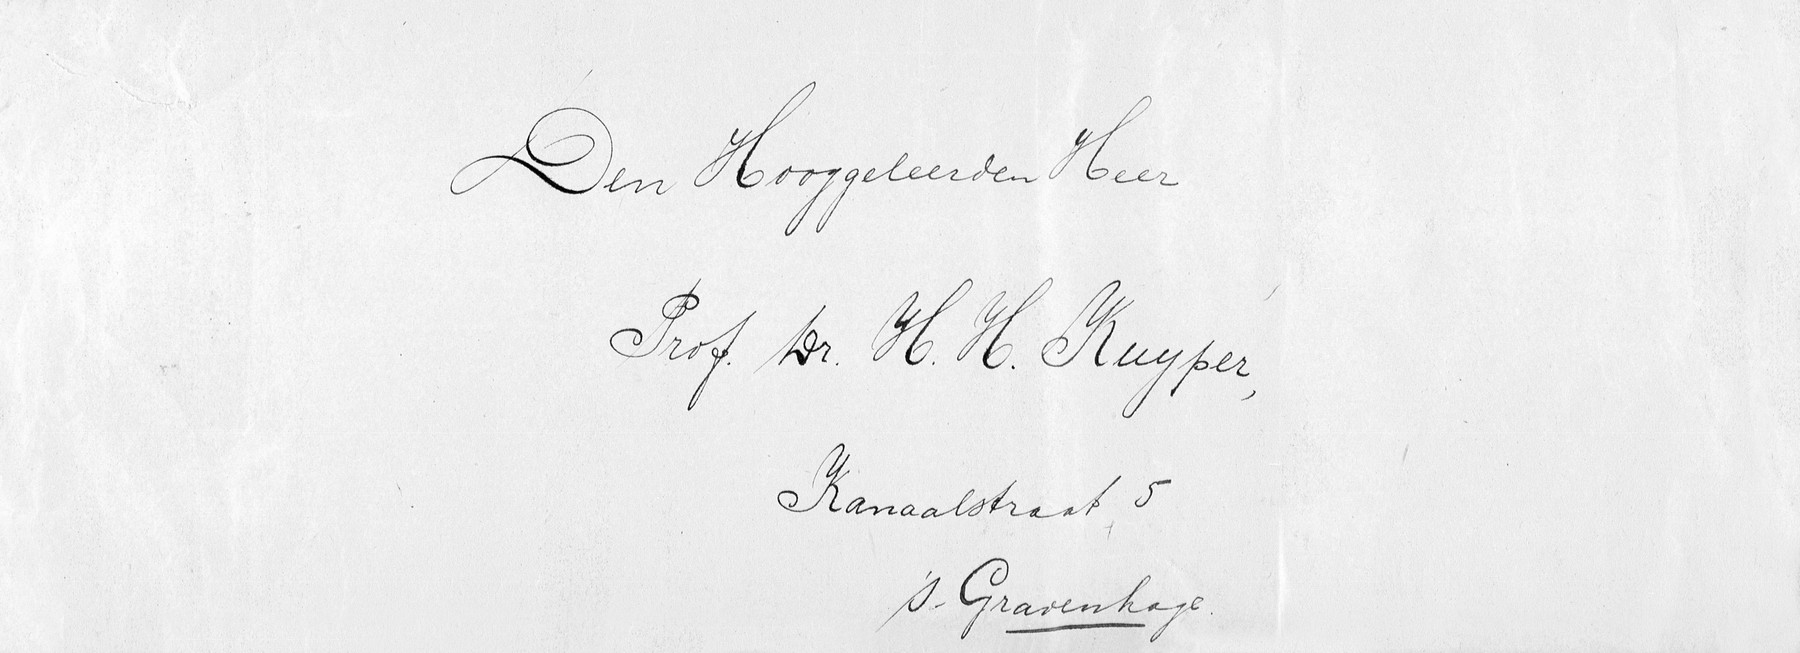 Den Hooggeleerden Heer
Prof. Dr. H. H. Kuyper,
Kanaalstraat 5
's-Gravenhage.